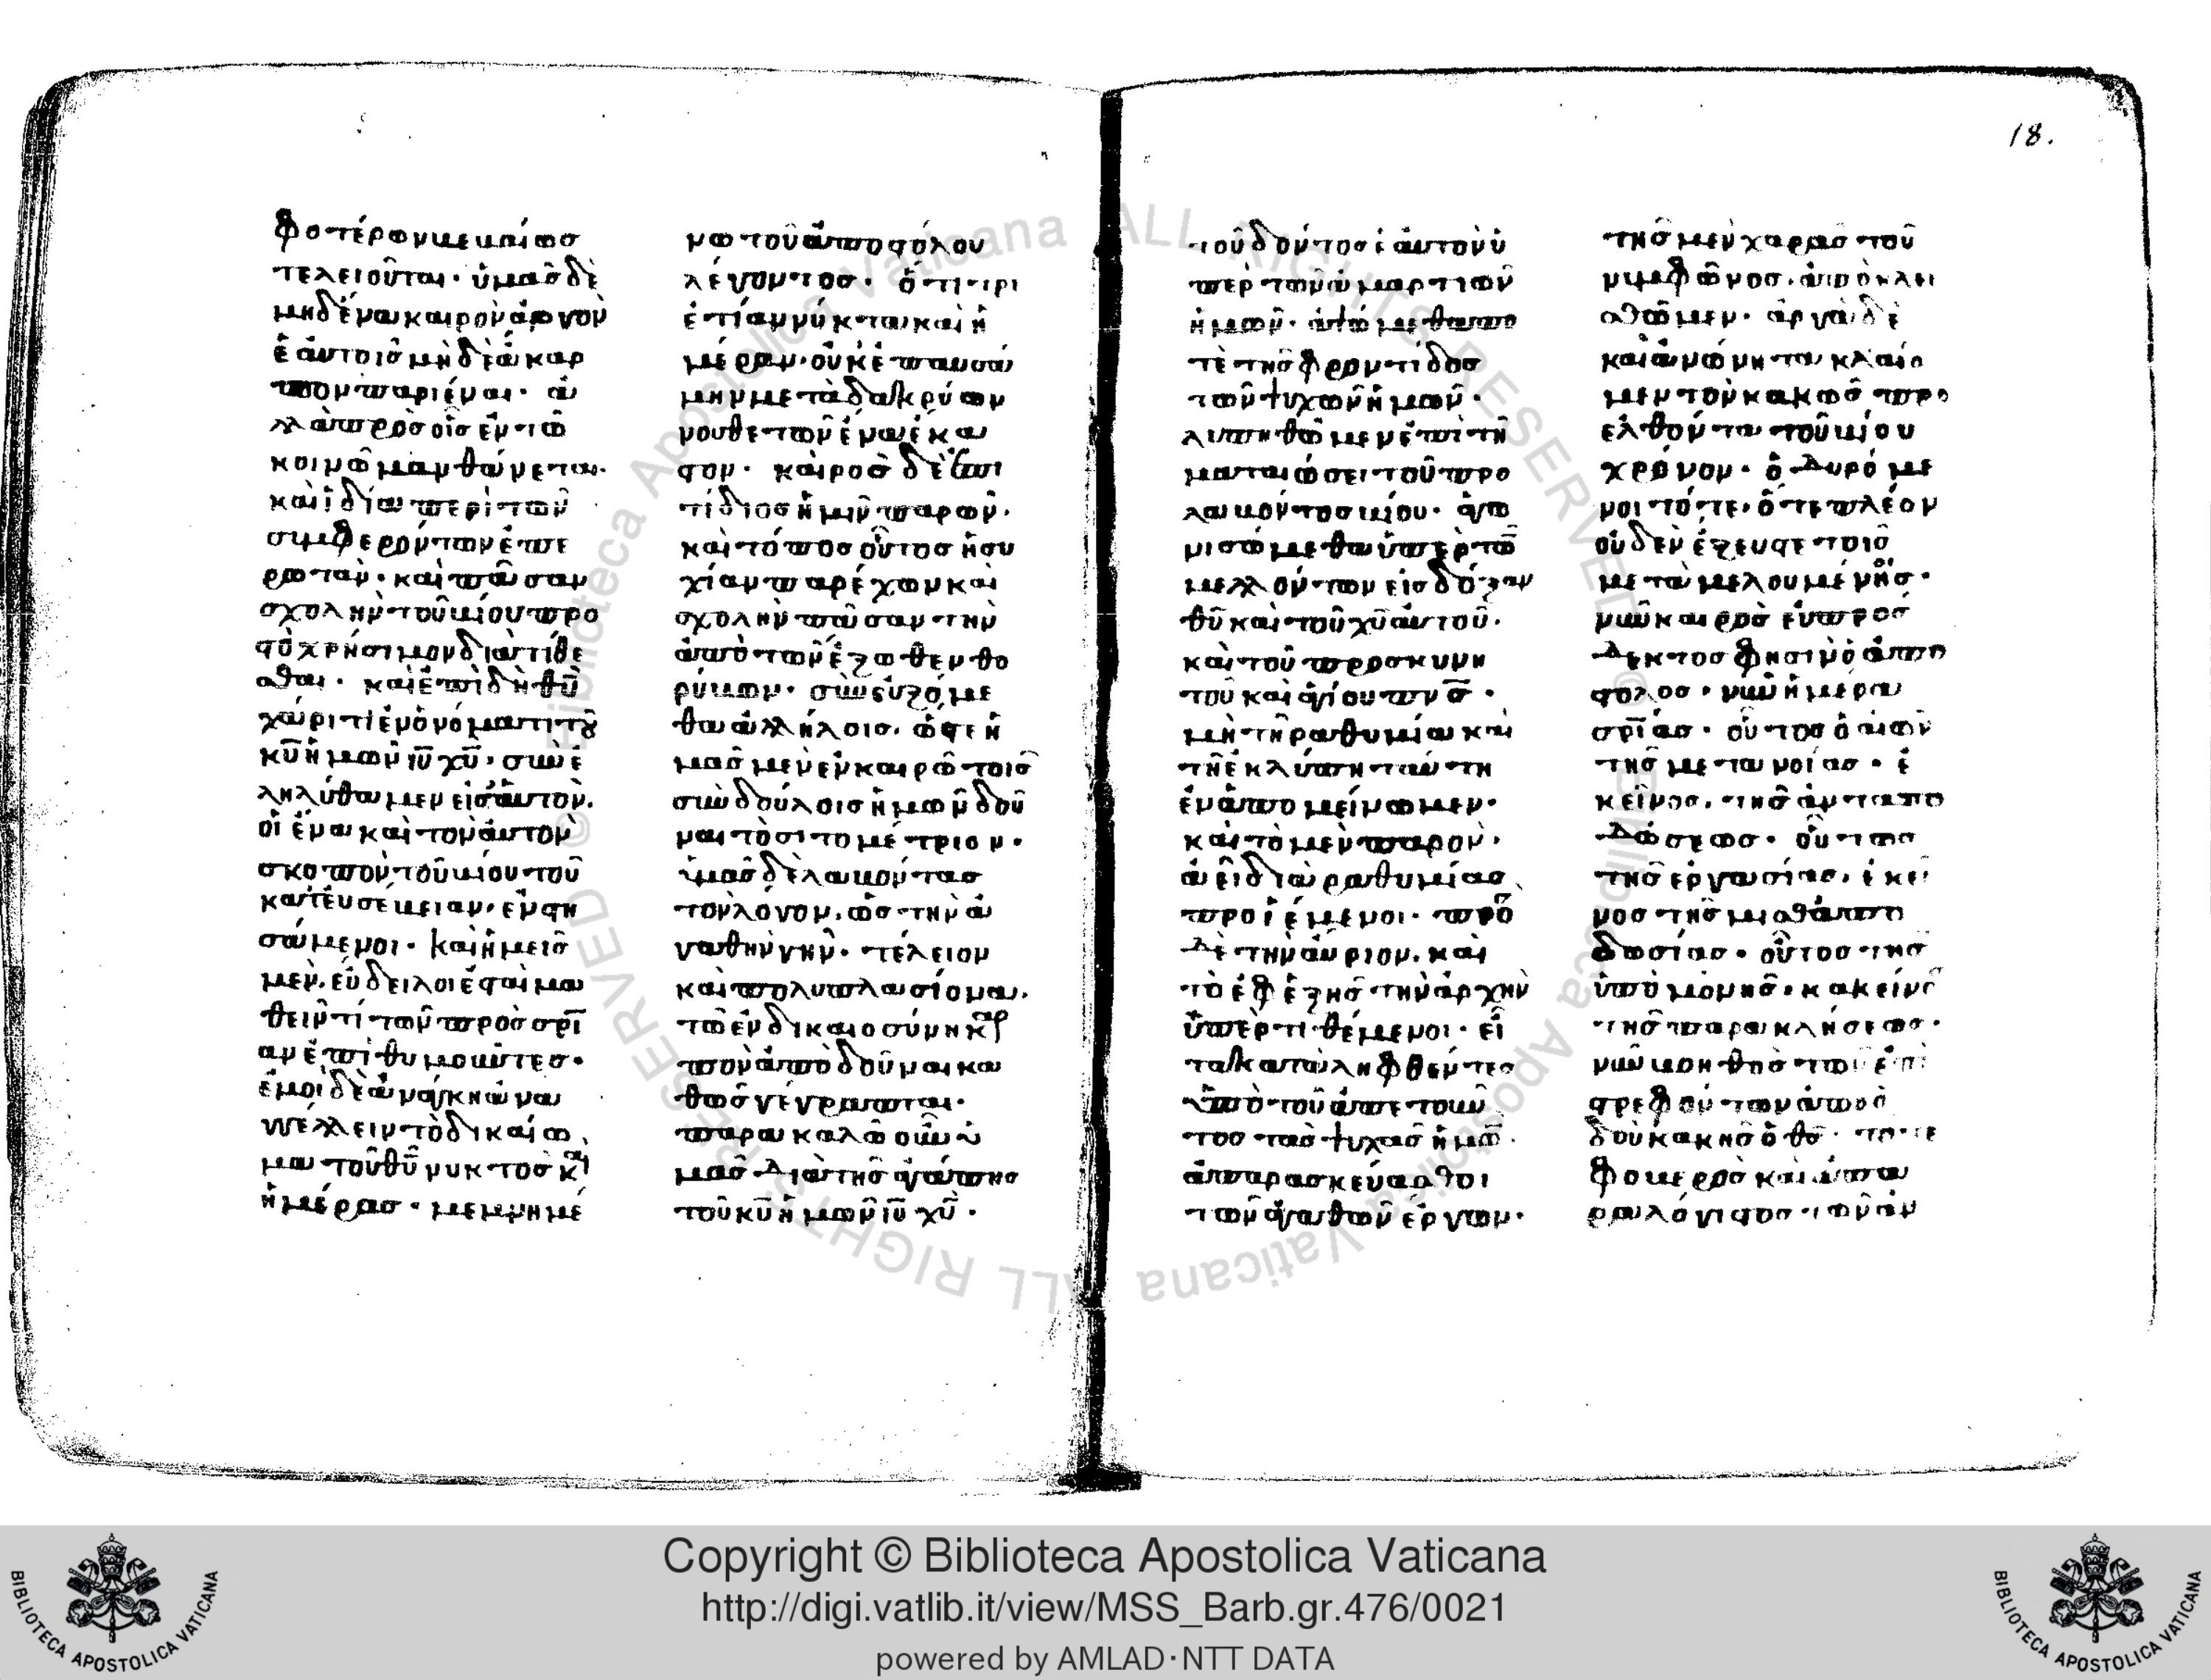 φοτέρων νενμαίωσ
τελειοῦται· ὑμᾶσ δὲ
μηδένα καιρὸν ἀργὸν
ἑαυτοῖσ μὴ δὲ ἄκαρ
πον παριέναι· ἀ
λλὰ πρὸσ οἷσ ἐν τῶ
κοινῶ μανθάνεται·
καὶ ἰδία περὶ τῶν
συμφερόντων ἐπε
ρωτᾶν· καὶ πᾶσαν
σχολὴν τοῦ βίου προ
στὸ χρήσιμον διατίθε
σθαι· καὶ ἐπιδὴ θῦ
χάριτι ἐν ὀνόματι τοῦ
κῦ ἡμῶν ἰῦ χῦ· συνε
ληλύθαμεν εἰσ αὐτὸν.
οἱ ἕνα καὶ τὸν αὐτὸν
σκοπὸν τοῦ βίου τοῦ
κατ' εὐσέβειαν, ἐνστη
σάμενοι· καὶ ἡμεῖσ
μὲν, εὔδειλοι ἐσται μα
θεῖν τί τῶν πρὸσ σρΐ
αν ἐπιθυμοῦντεσ·
ἐμοὶ δὲ ἀνάγκη ἀνα
γγέλλειν τὸ δικαίω
μα τοῦ θῦ νυκτοσ καὶ
ἡμέρασ· μεμνημέ
νω τοῦ ἀποστόλου
λέγοντοσ· ὅτι τρι
ετίαν νύκτα καὶ ἡ
μέραν· οὐκ ἐπαυσά
μην μετὰ δακρύων
νουθετῶν ἕνα ἕκα
στον· καιροσ δὲ ἐπι
τίδιοσ ἡμῖν παρὼν.
καὶ τόποσ οὗτοσ ἡσυ
χίαν παρέχων καὶ
σχολὴν πᾶσαν τὴν
ἀπὸ τῶν ἔξωθεν θο
ρύβων· συνευξόμε
θα ἀλλήλοισ, ὥστε ἡ
μᾶσ μὲν ἐν καιρῶ τοῖσ
συνδούλοισ ἡμῶν δοῦ
ναι τὸ σιτομέτριον·
ὑμᾶσ δὲ λαβόντασ
τὸν λόγον, ὡσ τὴν ἀ
γαθὴν γῆν· τέλειον
καὶ πολυπλασίονα.
τῶ ἐν δικαιοσύνη καρ
πὸν ἀποδοῦναι κα
θὼσ γέγραπται·
παρακαλῶ οὖν ὑ
μᾶσ διὰ τῆσ ἀγάπησ
τοῦ κῦ ἡμῶν ἰῦ χῦ·
18.
τοῦ δόντοσ ἑαυτὸν ὑ
πὲρ τῶν ἁμαρτιῶν
ἡμῶν· ἁψώμεθα πο
τὲ τῆσ φροντίδοσ
τῶν ψυχῶν ἡμῶν·
λυπηθῶμεν ἐπὶ τῆ
ματαιώσει τοῦ προ
λαβόντοσ βίου· ἀγω
νισώμεθα ὑπὲρ τῶ
μελλόντων εἰσ δόξαν
θῦ καὶ τοῦ χῦ αὐτοῦ·
καὶ τοῦ προσκυνη
τοῦ καὶ ἁγίου πνσ·
μὴ τῆ ραθυμία καὶ
τῆ ἐκλύση ταύτη
ἐναπομείνωμεν·
καὶ τὸ μὲν παρὸν·
ἀεὶ διὰ ραθυμίασ
προϊέμενοι· πρὸ
δὲ τὴν αὔριον, καὶ
τὸ ἐφεξῆσ τὴν ἀρχὴν
ὑπερτιθέμενοι· εἶ
τα καταληφθέντεσ
ὑπὸ τοῦ ἀπαιτοῦν
τοσ τὰσ ψυχὰσ ἡμῶ·
ἀπαρασκεύασθοι
τῶν ἀγαθῶν ἔργων·
τῆσ μὲν χαρᾶσ τοῦ
νυμφῶνοσ, ἀποκλει
σθῶμεν· ἀργὰ δὲ
καὶ ἀνόνητα κλαίο
μεν τὸν κακῶσ προ
ελθόντα τοῦ βίου
χρόνον· ὀδυρόμε
νοι τότε, ὅτε πλέον
οὐδὲν ἔξεστε τοῖσ
μεταμελουμένησ·
νῦν καιρὸσ εὐπροσ
δεκτοσ φησὶν ὁ ἀπο
στολοσ· νῦν ἡμέρα
σρΐασ· οὗτοσ ὁ αἰὼν
τῆσ μετανοίασ· ἐ
κεῖνοσ, τῆσ ἀνταπο
δώσεωσ· οὗτοσ
τῆσ ἐργασίασ, ἐκεῖ
νοσ τῆσ μισθαπο
δωσίασ· οὗτοσ τῆσ
ὑπομονῆσ· κακείνοσ
τῆσ παρακλήσεωσ·
νῦν βοηθὸσ τῶν ἐπι
στρεφόντων ἀπὸ ὁ
δοῦ κακῆσ ὁ θσ· τότε
φοβερὸσ καὶ ἀπα
ραλόγιστοσ τῶν ἀν
Copyright © Biblioteca Apostolica Vaticana
http://digi.vatlib.it/view/MSS_Barb.gr.476/0021
powered by AMLAD·NTT DATA
BIBLIOTECA APOSTOLICA VATICANA
BIBLIOTECA APOSTOLICA VATICANA